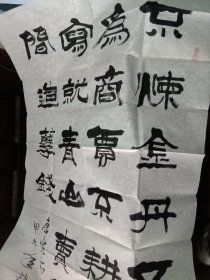 不煉金丹不
為商賈不耕
寫就青山賣
間造孽錢
唐寅